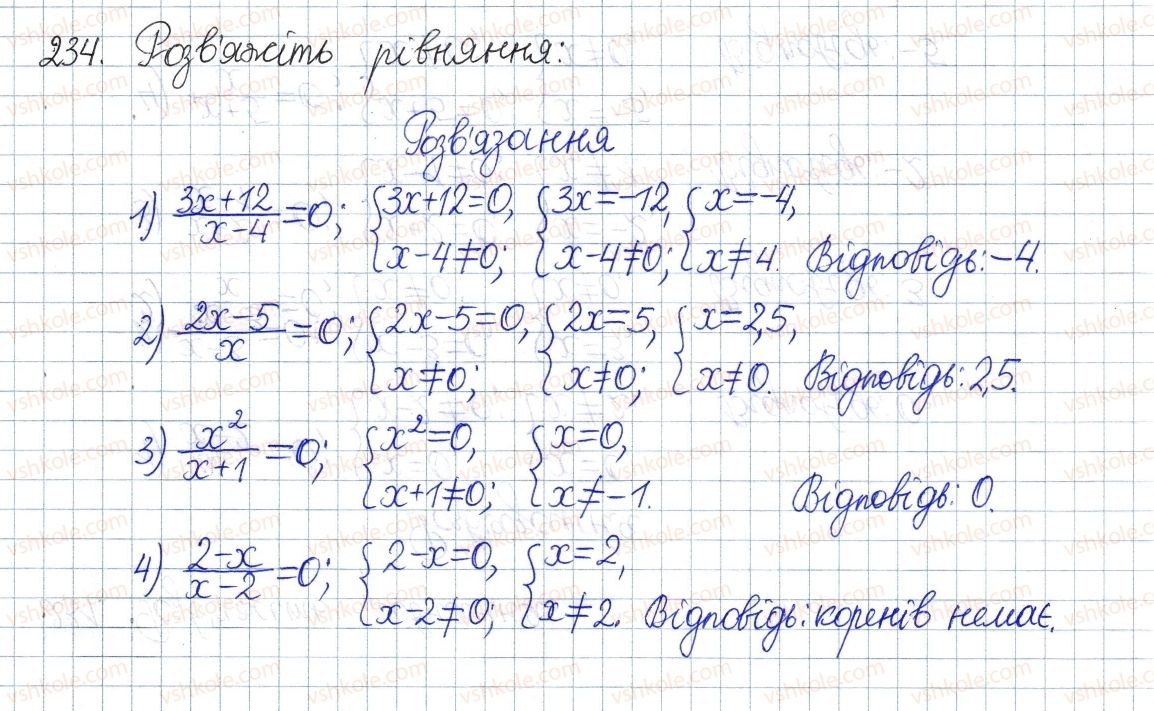 234. Розв'яжіть рівняння:
Розв'язання
1) (3x+12)/(x-4)=0; {3x+12=0, x-4≠0; {3x=-12, x-4≠0; {x=-4, x≠4. Відповідь: -4.
2) (2x-5)/x=0; {2x-5=0, x≠0; {2x=5, x≠0; {x=2,5, x≠0. Відповідь: 2,5.
3) x²/(x+1)=0; {x²=0, x+1≠0; {x=0, x≠-1. Відповідь: 0.
4) (2-x)/(x-2)=0; {2-x=0, x-2≠0; {x=2, x≠2. Відповідь: коренів немає.
vshkole.com